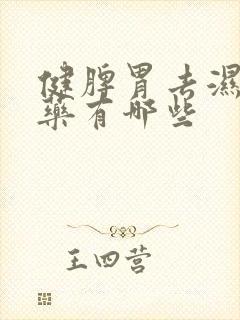 健脾胃去濕
藥有哪些
王四营